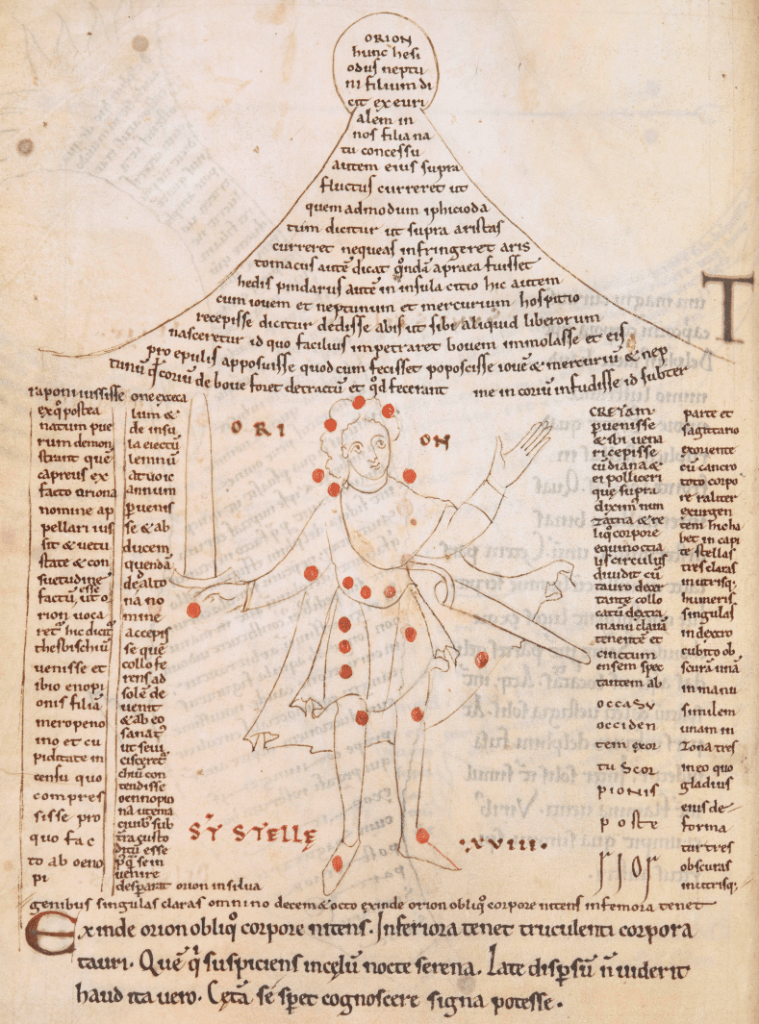 ORION
hunc hesi
odus neptu
ni filium di
cit ex euri
alem in
nos filia na
tu concessu
autem eius supra
fluctus curreret ut
quem admodum iphicioda
tum dicitur ut supra aristas
curreret nequeas infringeret aris
tomacus autē dicat qndā apraea fuisset
hedis pindarus autē in insula citio hic autem
cum iovem et neptunum et mercurium hospitio
recepisse dicitur dedisse abis ut sibi aliquid liberorum
nasceretur id quo facilius impetraret bovem immolasse et eis
pro epulis apposuisse quod cum fecisset poposcisse iovē & mercuriū & nep
tunū q̄ coriū de bove foret detractū et qd fecerant me in coriū infudisse id subter
raponi iussisse
ex q̊ postea
natum pue
rum demon
strant quē
capreus ex
facto oriona
nomine ap
pellari ius
sit & vetu
state & con
suetudine
esse
factū, ut o
rion voca
ret hic dicit
thesbischiū
venisse et
ibio enopi
onis filiā
meropeno
ino et cu
piditate in
censū quo
compres
sisse pro
quo fac
to ab oeno
pi
one exceca
lum &
de insu
la eiectū
lemnū
at voie
annum
pvenis
se & ab
ducem
quendā
de alto
na no
mine
accepis
se que
collo fe
rens ad
solē de
venit
& ab eo
sanat
ut se vi
cisceret
chiū con
tendisse
oennopio
na verū a
civib sub
tra custo
ditū esse
pq̄ se in
venire
desparat orion in silva
ORI ON
SŸT STELLĘ ·XVIII·
CREYAM
pvenisse
& ibi vena
ri cepisse
cū diana &
ei polliceri
que supra
diximꝰ nun
zatq̄ & re
liq̊ corpore
equinoctia
lis circulus
dividit cū
tauro decer
tante collo
catū dextra
manu clavā
tenentē et
cinctum
ensem spec
tantem ab
occasu
occiden
tem exor
tu scor
pionis
poste
rior
parte et
sagittario
exoriente
cū cancro
toto corpo
re raliter
exurgen
tēm hic ha
bet in capi
te stellas
tres claras
in utrisq;
humeris
singulas
in dextro
cubito ob
scurā unā
in manu
similem
unam in
zona tres
in eo quo
gladius
eius de
forma
tur tres
obscuras
in utrisq;
genibus singulas claras omnino decem & octo exinde orion obliq̊ corpore nitens infemora tenet
Exinde orion obliq̊ corpore nitens. Inferiora tenet truculenti corpora
tauri. Quē q̇ suspiciens in cęlū nocte serena. Late dispersū n̄ viderit
haud ita vero. Cętā se speret cognoscere signa potesse.
T